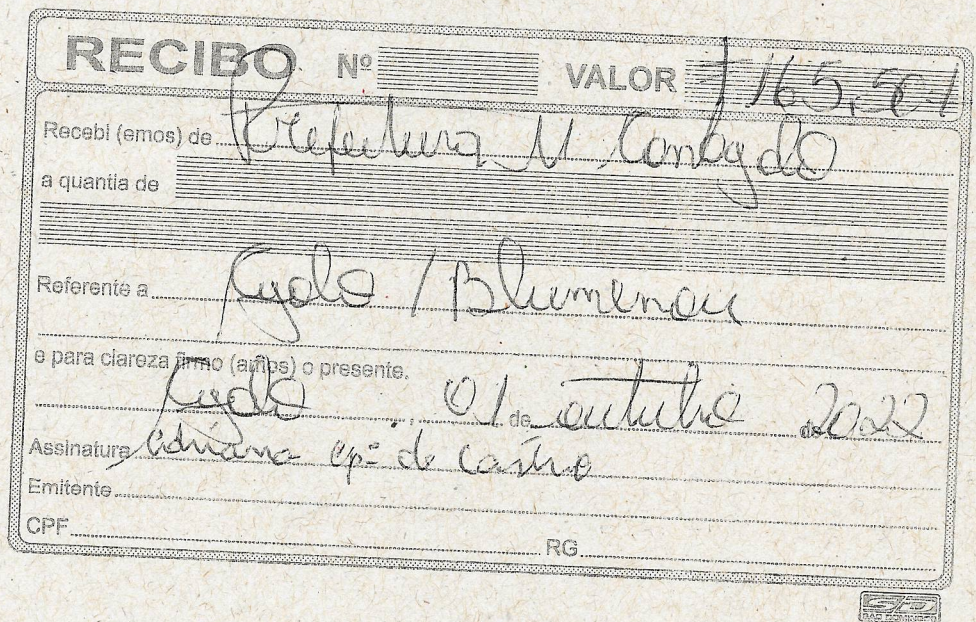 RECIBO Nº VALOR 165,50
Recebi (emos) de Prefeitura M
a quantia de
Referente a / Blumenau
e para clareza firmo (amos) o presente.
01 de outubro de 2022
Assinatura Adriana Ap= de Castro
Emitente
CPF RG
SÃO DOMINGOS